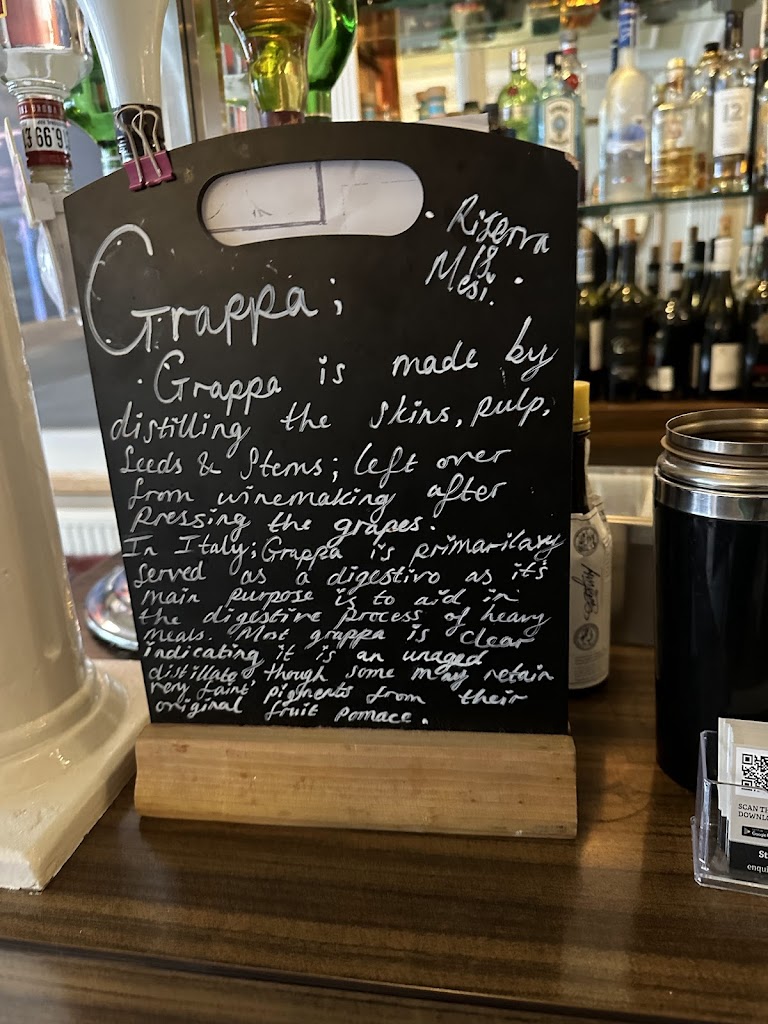 Grappa;
• Riserva
18
Mesi. •
• Grappa is made by
distilling the skins, pulp,
seeds & stems; left over
from winemaking after
pressing the grapes.
In Italy; Grappa is primarilary
served as a digestivo as it's
main purpose is to aid in
the digestive process of heavy
meals. Most grappa is clear
indicating it is an unaged
distillato, though some may retain
very faint pigments from their
original fruit pomace.
12
SCAN TH
DOWNLO
Google
St
enqui